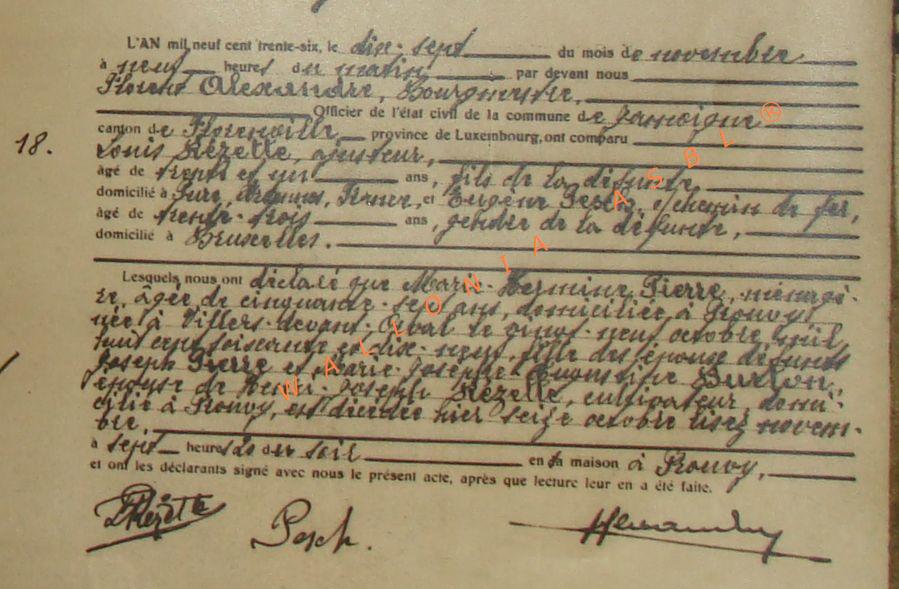 L'AN mil neuf cent trente-six, le dix-sept du mois de novembre
à neuf heures du matin par devant nous
Florent Alexandre, Bourgmestre,
Officier de l'état civil de la commune de Jamoigne
canton de Florenville province de Luxembourg, ont comparu
18.
Louis Rézette, ajusteur,
âgé de trente et un ans, fils de la défunte
domicilié à France, et Eugène Pesch, chemin de fer,
âgé de trente-trois ans, gendre de la défunte,
domicilié à Bruxelles.
Lesquels nous ont déclaré que Marie-Hermine Pierre, ménagè-
re, âgée de cinquante-sept ans, domiciliée à Prouvy,
née à Villers-devant-Orval le vingt-neuf octobre mil
huit cent soixante et dix-neuf, fille des époux défunts
Joseph Pierre et Marie-Josèphe Burton,
épouse de Henri-Joseph Rézette, cultivateur, domi-
cilié à Prouvy, est décédée hier seize octobre lisez novem-
bre,
à sept heures du soir en sa maison à Prouvy,
et ont les déclarants signé avec nous le présent acte, après que lecture leur en a été faite.
LRézette
Pesch.
WALLONIA ASBL ®